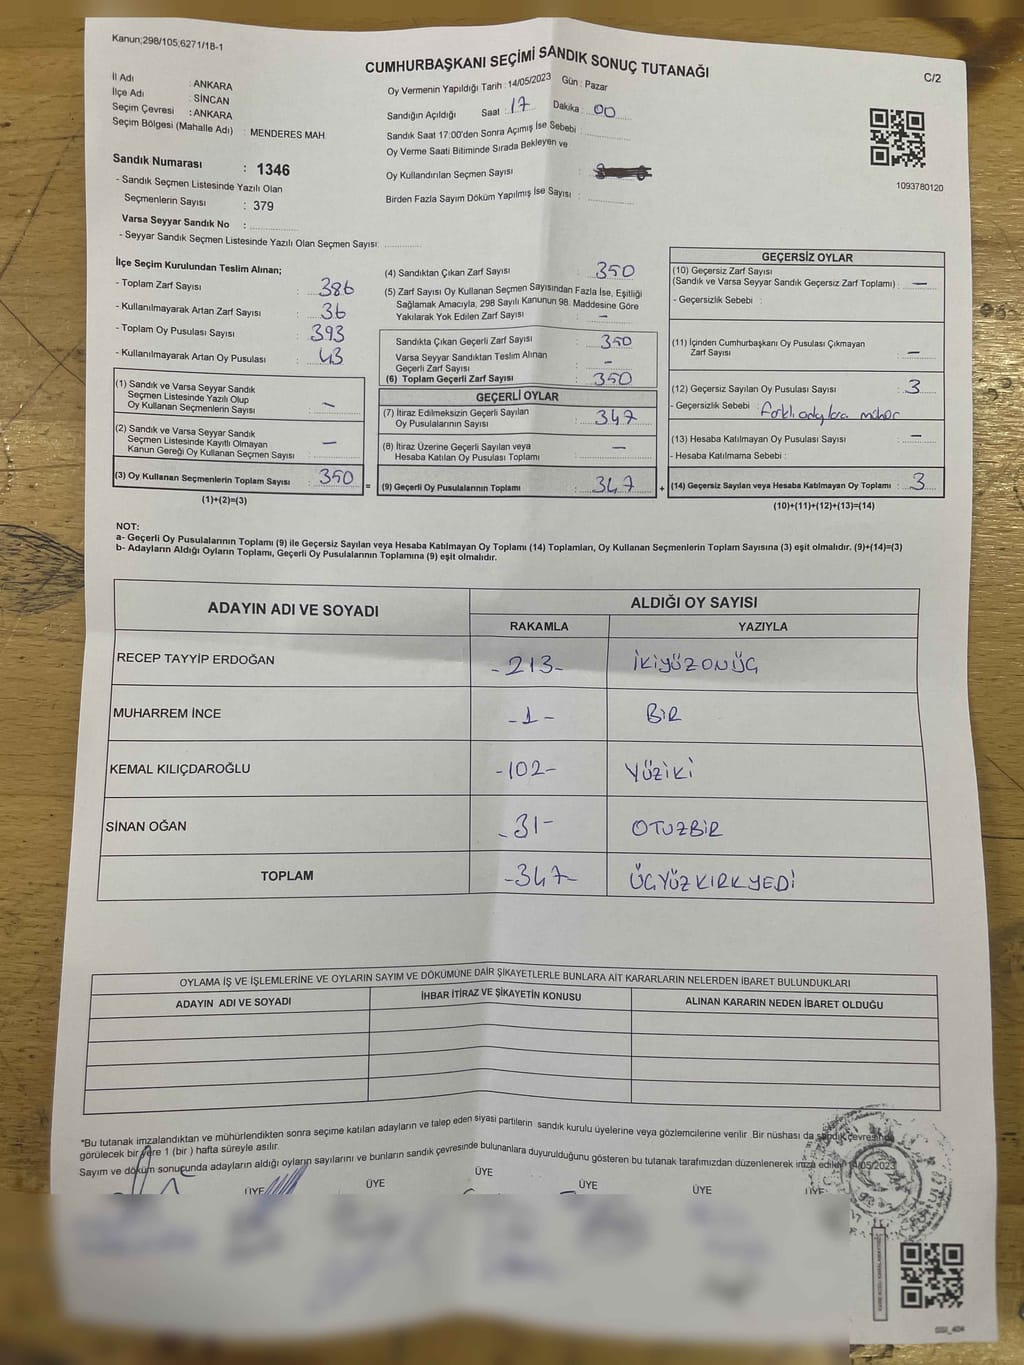 Kanun;298/105;6271/18-1
CUMHURBAŞKANI SEÇİMİ SANDIK SONUÇ TUTANAĞI
C/2
İl Adı : ANKARA
İlçe Adı : SİNCAN
Seçim Çevresi : ANKARA
Seçim Bölgesi (Mahalle Adı) : MENDERES MAH
Sandık Numarası : 1346
- Sandık Seçmen Listesinde Yazılı Olan
Seçmenlerin Sayısı : 379
Varsa Seyyar Sandık No :
- Seyyar Sandık Seçmen Listesinde Yazılı Olan Seçmen Sayısı:
Oy Vermenin Yapıldığı Tarih : 14/05/2023 Gün : Pazar
Sandığın Açıldığı Saat : 17 Dakika : 00
Sandık Saat 17:00'den Sonra Açımış İse Sebebi :
Oy Verme Saati Bitiminde Sırada Bekleyen ve
Oy Kullandırılan Seçmen Sayısı :
Birden Fazla Sayım Döküm Yapılmış İse Sayısı :
1093780120
İlçe Seçim Kurulundan Teslim Alınan;
- Toplam Zarf Sayısı : 386
- Kullanılmayarak Artan Zarf Sayısı : 36
- Toplam Oy Pusulası Sayısı : 393
- Kullanılmayarak Artan Oy Pusulası : 43
(1) Sandık ve Varsa Seyyar Sandık
Seçmen Listesinde Yazılı Olup
Oy Kullanan Seçmenlerin Sayısı : -
(2) Sandık ve Varsa Seyyar Sandık
Seçmen Listesinde Kayıtlı Olmayan
Kanun Gereği Oy Kullanan Seçmen Sayısı : -
(3) Oy Kullanan Seçmenlerin Toplam Sayısı : 350
(1)+(2)=(3)
=
(4) Sandıktan Çıkan Zarf Sayısı : 350
(5) Zarf Sayısı Oy Kullanan Seçmen Sayısından Fazla İse, Eşitliği
Sağlamak Amacıyla, 298 Sayılı Kanunun 98. Maddesine Göre
Yakılarak Yok Edilen Zarf Sayısı : -
Sandıkta Çıkan Geçerli Zarf Sayısı : 350
Varsa Seyyar Sandıktan Teslim Alınan
Geçerli Zarf Sayısı : -
(6) Toplam Geçerli Zarf Sayısı : 350
GEÇERLİ OYLAR
(7) İtiraz Edilmeksizin Geçerli Sayılan
Oy Pusulalarının Sayısı : 347
(8) İtiraz Üzerine Geçerli Sayılan veya
Hesaba Katılan Oy Pusulası Toplamı : -
(9) Geçerli Oy Pusulalarının Toplamı : 347
+
GEÇERSİZ OYLAR
(10) Geçersiz Zarf Sayısı
(Sandık ve Varsa Seyyar Sandık Geçersiz Zarf Toplamı) : -
- Geçersizlik Sebebi :
(11) İçinden Cumhurbaşkanı Oy Pusulası Çıkmayan
Zarf Sayısı : -
(12) Geçersiz Sayılan Oy Pusulası Sayısı : 3
- Geçersizlik Sebebi : farklı adaylara mühür
(13) Hesaba Katılmayan Oy Pusulası Sayısı : -
- Hesaba Katılmama Sebebi :
(14) Geçersiz Sayılan veya Hesaba Katılmayan Oy Toplamı : 3
(10)+(11)+(12)+(13)=(14)
NOT:
a- Geçerli Oy Pusulalarının Toplamı (9) ile Geçersiz Sayılan veya Hesaba Katılmayan Oy Toplamı (14) Toplamları, Oy Kullanan Seçmenlerin Toplam Sayısına (3) eşit olmalıdır. (9)+(14)=(3)
b- Adayların Aldığı Oyların Toplamı, Geçerli Oy Pusulalarının Toplamına (9) eşit olmalıdır.
ADAYIN ADI VE SOYADI ALDIĞI OY SAYISI
RAKAMLA YAZIYLA
RECEP TAYYİP ERDOĞAN -213- İKİYÜZONÜÇ
MUHARREM İNCE -1- BİR
KEMAL KILIÇDAROĞLU -102- YÜZİKİ
SİNAN OĞAN -31- OTUZBİR
TOPLAM -347- ÜÇYÜZKIRKYEDİ
OYLAMA İŞ VE İŞLEMLERİNE VE OYLARIN SAYIM VE DÖKÜMÜNE DAİR ŞİKAYETLERLE BUNLARA AİT KARARLARIN NELERDEN İBARET BULUNDUKLARI
ADAYIN ADI VE SOYADI İHBAR İTİRAZ VE ŞİKAYETİN KONUSU ALINAN KARARIN NEDEN İBARET OLDUĞU
"Bu tutanak imzalandıktan ve mühürlendikten sonra seçime katılan adayların ve talep eden siyasi partilerin sandık kurulu üyelerine veya gözlemcilerine verilir .Bir nüshası da sandık çevresinde
görülecek bir yere 1 (bir ) hafta süreyle asılır.
Sayım ve döküm sonucunda adayların aldığı oyların sayılarını ve bunların sandık çevresinde bulunanlara duyurulduğunu gösteren bu tutanak tarafımızdan düzenlenerek imza edildi. 14/05/2023
ÜYE ÜYE ÜYE ÜYE ÜYE ÜYE